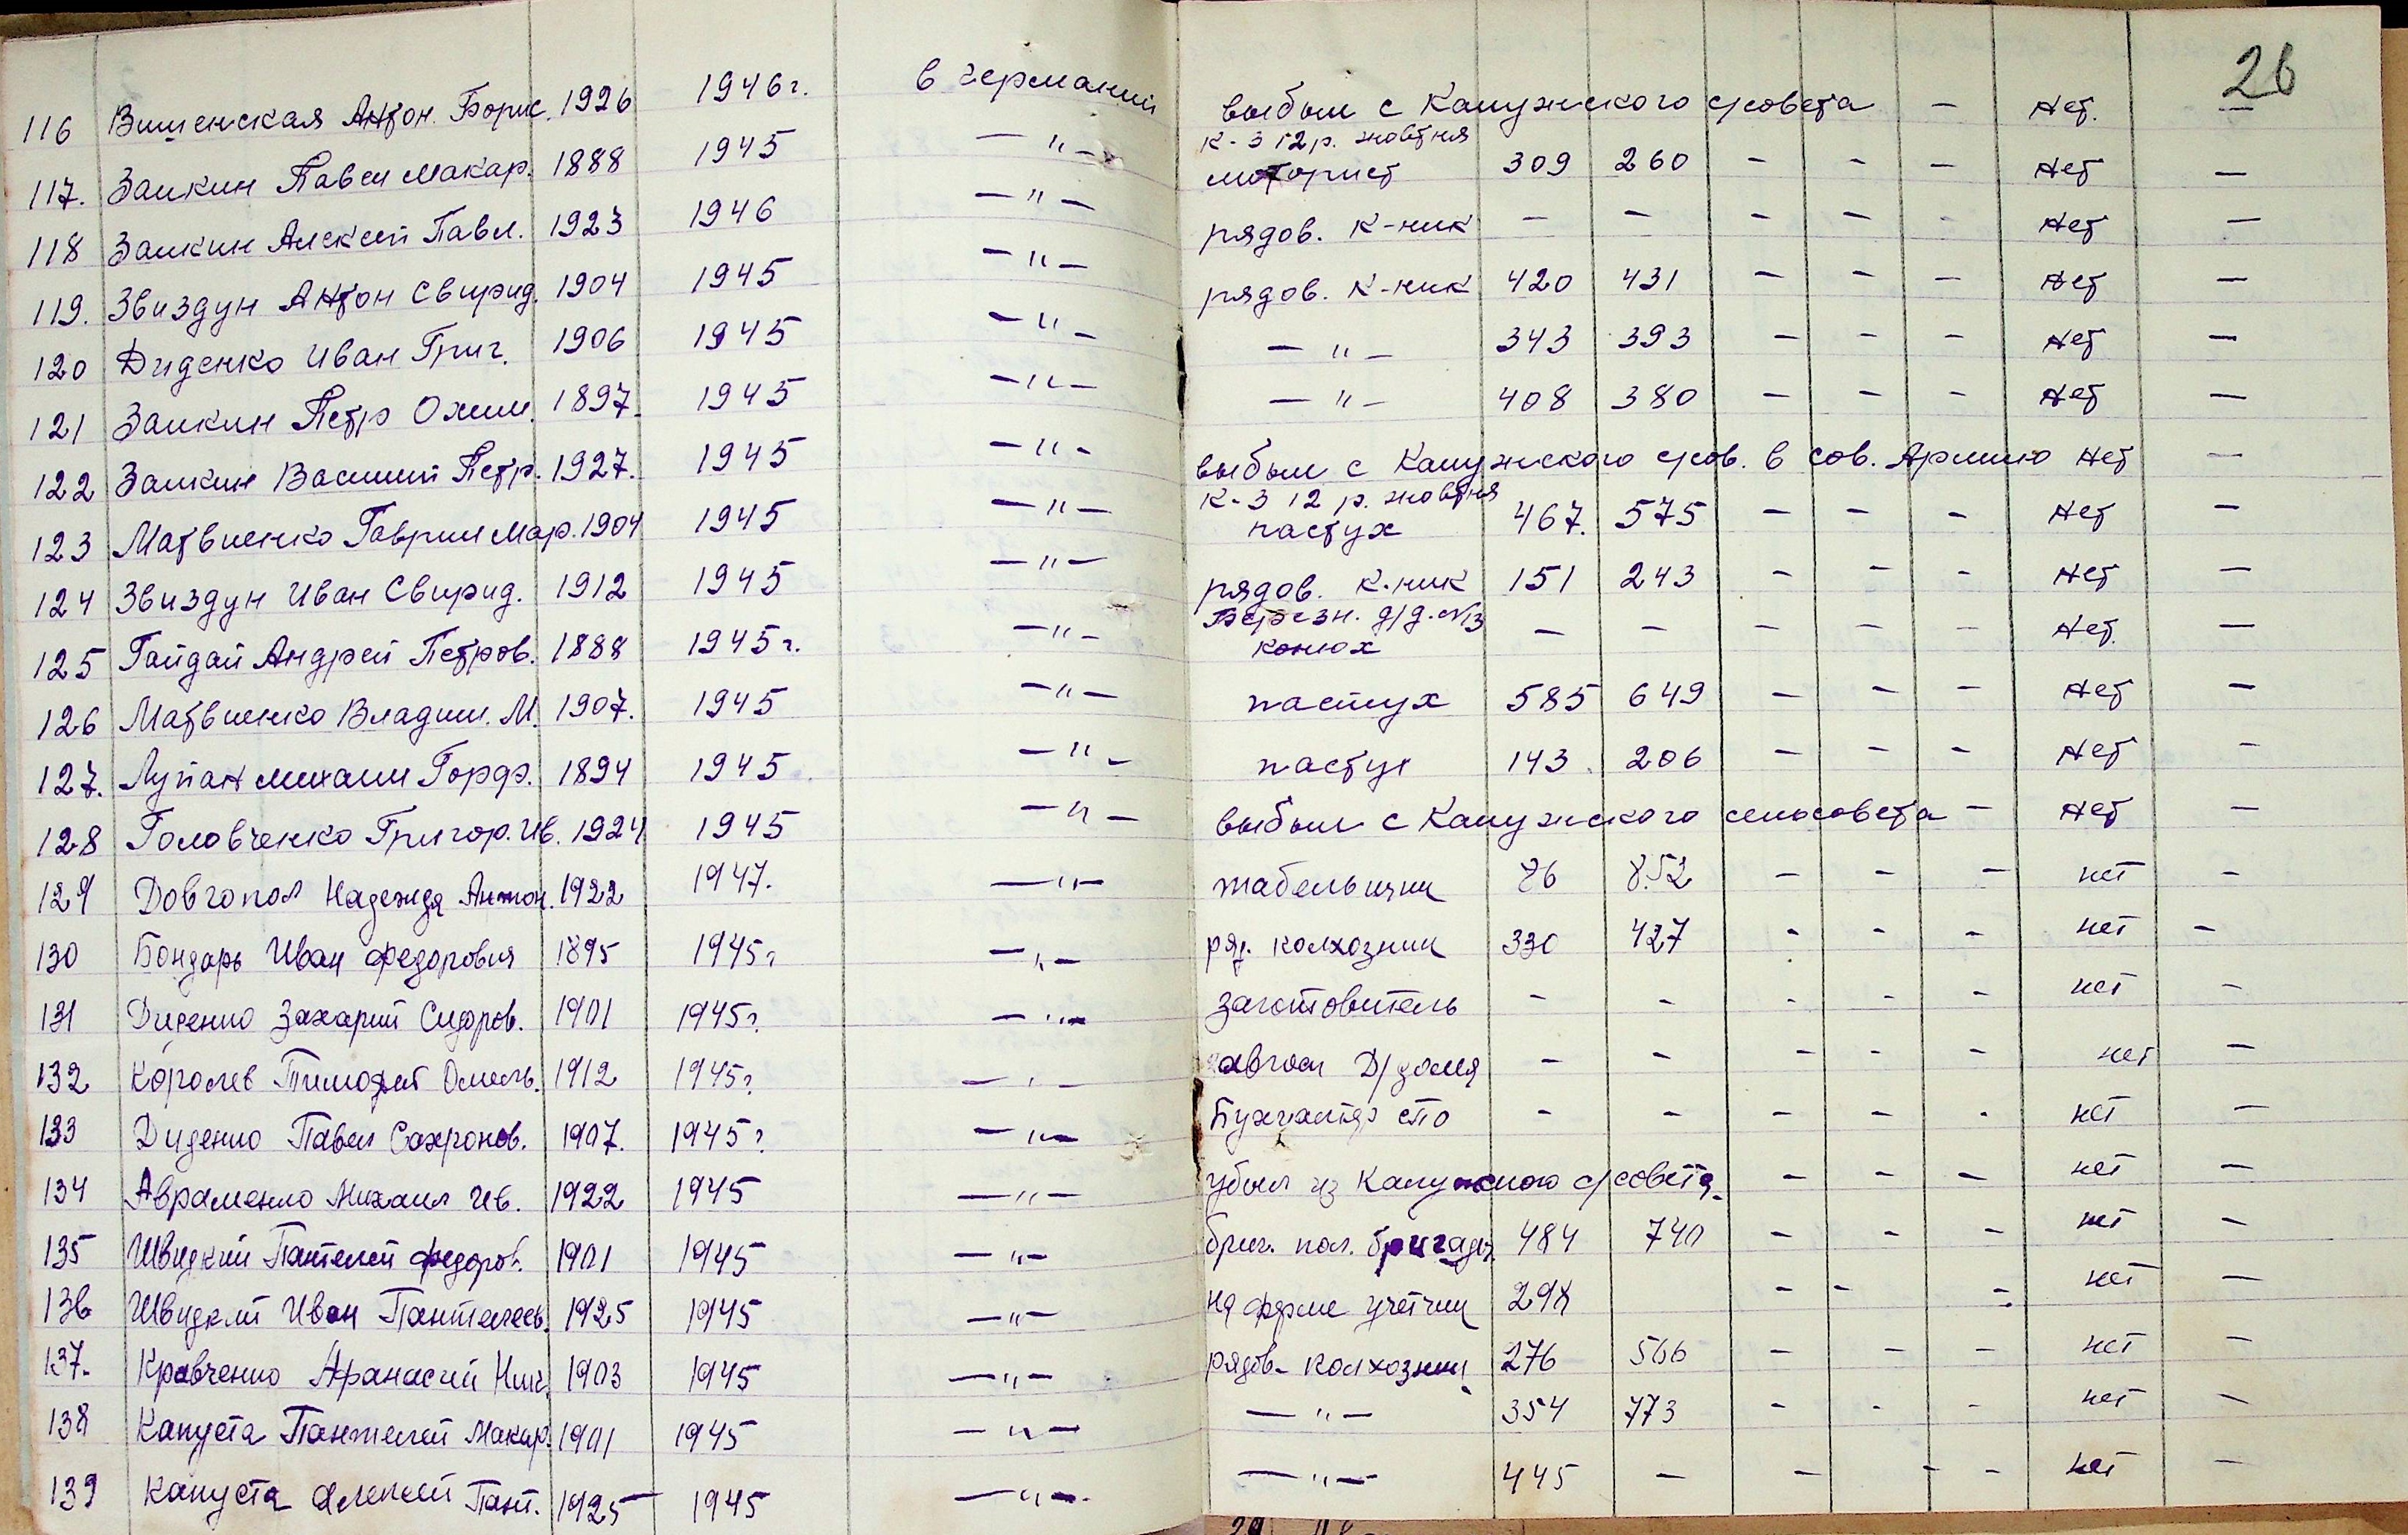 26
116 Вишенская Антон. Борис. 1926 1946г. в Германии выбыл с Калужского с/совета - Нет.
117. Заикин Павел Макар. 1888 1945 —"— к-з 12 р. жовтня моторист 309 260 - - - Нет —
118 Заикин Алексей Павл. 1923 1946 —"— рядов. к-ник - - - - - Нет —
119. Звиздун Антон Свирид. 1904 1945 —"— рядов. к-ник 420 431 - - - Нет —
120 Диденко Иван Григ. 1906 1945 —"— —"— 343 393 - - - Нет —
121 Заикин Петр Охим. 1897. 1945 —"— —"— 408 380 - - - Нет —
122 Заикин Василий Петр. 1927. 1945 —"— выбыл с Калужского с/сов. в сов. Армию Нет —
123 Матвиенко Гаврил Мар. 1904 1945 —"— к-з 12 р. жовтня пастух 467. 575 - - - Нет —
124 Звиздун Иван Свирид. 1912 1945 —"— рядов. к.ник 151 243 - - - Нет —
125 Гайдай Андрей Петров. 1888 1945г. —"— Березн. д/д. №3 конюх - - - - - Нет. —
126 Матвиенко Владим. М. 1907. 1945 —"— пастух 585 649 - - - Нет —
127. Лупан Михаил Горд. 1894 1945 —"— пастух 143 206 - - - Нет -
128 Головченко Григор. Ив. 1924 1945 —"— выбыл с Калужского сельсовета - Нет —
129 Довгопол Надежда Антон. 1922 1947. —"— табельщик 76 852 - - - нет -
130 Бондарь Иван Федорович 1895 1945г —"— ряд. колхозник 330 427 - - - нет -
131 Диденко Захарий Сидоров. 1901 1945г. —"— заготовитель - - - - - нет -
132 Королев Тимофей Омель. 1912 1945г. —"— завхоз Д/дома - - - - - нет —
133 Диденко Павел Сахронов. 1907. 1945г. —"— Бухгалтер СТО - - - - - нет —
134 Авраменко Михаил Ив. 1922 1945 —"— убыл из Калужского с/совета. - - - нет —
135 Швидкий Пантелей Федоров. 1901 1945 —"— бриг. пол. бригады 484 740 - - - нет -
136 Швидкий Иван Пантелеев. 1925 1945 —"— на ферме учетчик 298 - - - нет —
137. Кравченко Афанасий Ник. 1903 1945 —"— рядов. колхозник 276 566 - - - нет —
138 Капуста Пантелей Макар. 1901 1945 —"— —"— 354 773 - - - нет -
139 Капуста Алексей Пант. 1925 1945 —"— —"— 445 - - - - нет —